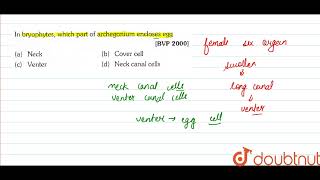 In bryophytes, which part of archegonium encloses egg
[BVP 2000]
(a) Neck (b) Cover cell
(c) Venter (d) Neck canal cells
female sex organ
swollen
long canal
venter
neck canal cells
venter canal cells
venter → egg cell
doubtnut